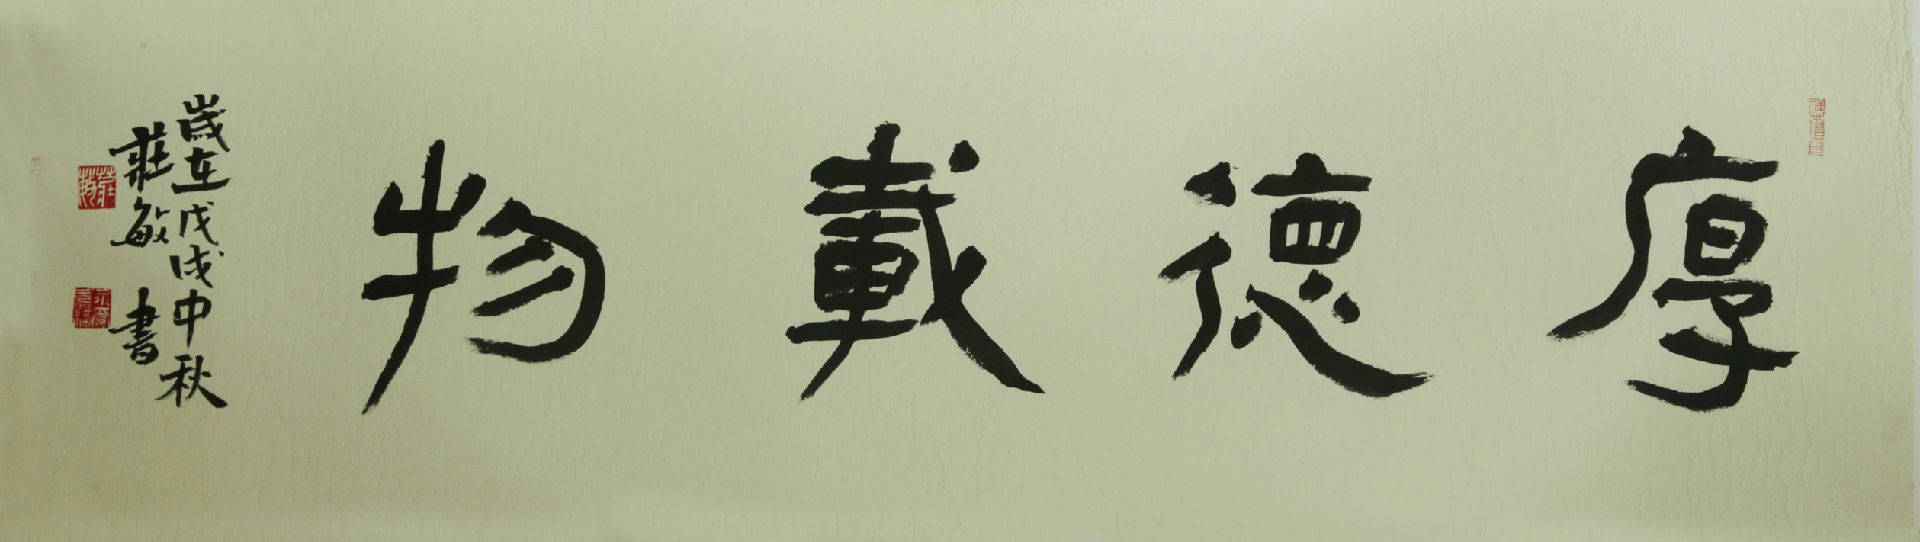 厚德載物
歲在戊戌中秋
莊敏書